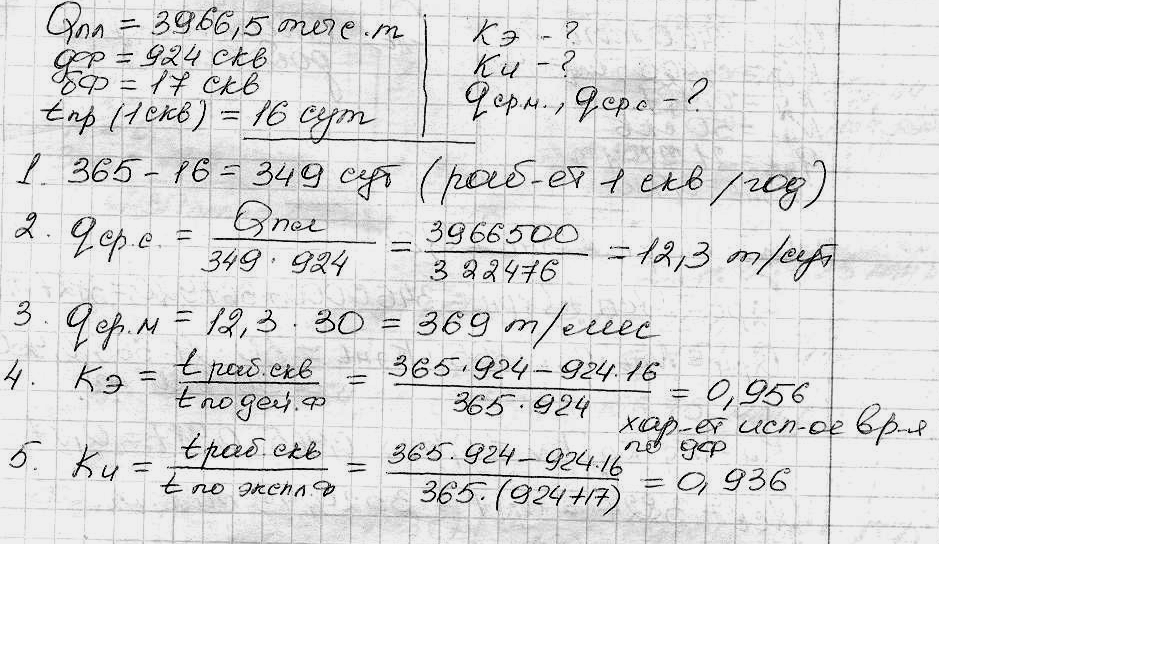 Qпл = 3966,5 тыс.т
дф = 924 скв
бф = 17 скв
tпр (1скв) = 16 сут
Кэ - ?
Ки - ?
qср.м., qср.с - ?
1. 365 - 16 = 349 сут (раб-ет 1 скв/год)
2. qср.с. = Qпл / 349·924 = 3966500 / 322476 = 12,3 т/сут
3. qср.м = 12,3·30 = 369 т/мес
4. Кэ = t раб.скв / t по дей.ф = 365·924 - 924·16 / 365·924 = 0,956
хар-ет исп-ое вр-я
по дф
5. Ки = t раб скв / t по экспл.ф = 365·924 - 924·16 / 365·(924+17) = 0,936